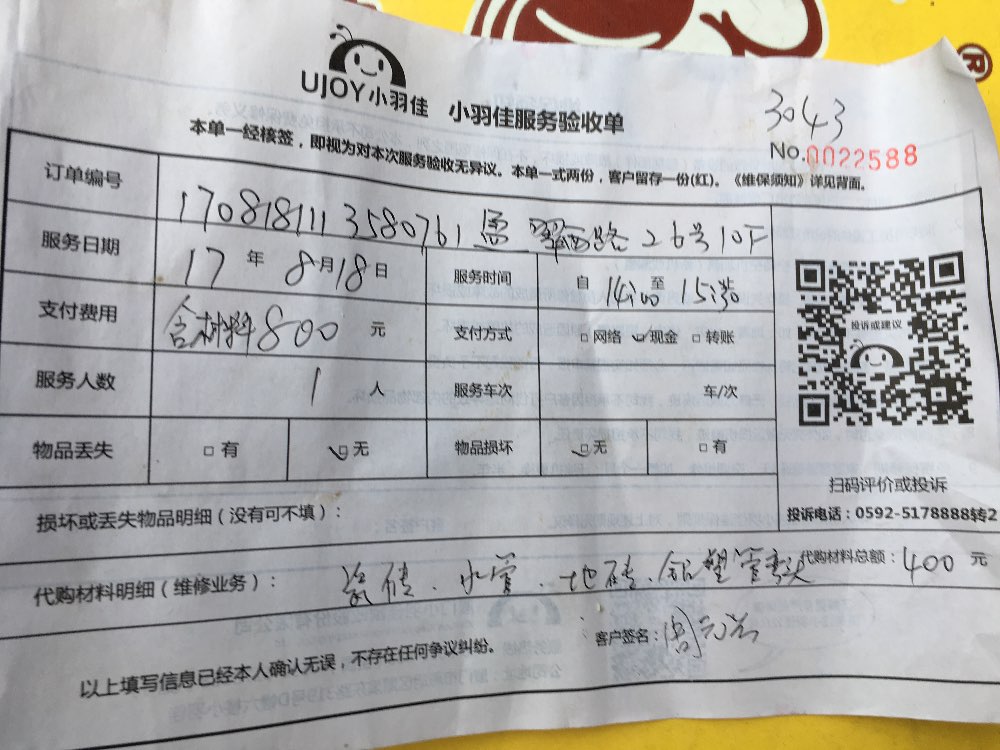 UJOY小羽佳 小羽佳服务验收单
3043
No.0022588
本单一经核签，即视为对本次服务验收无异议。本单一式两份，客户留存一份(红)。《维保须知》详见背面。
订单编号 1708181113580761 路26号10F
服务日期 17年8月18日 服务时间 自14:00至15:30
支付费用 含材料800元 支付方式 □网络 现金 □转账
服务人数 1人 服务车次 车/次
物品丢失 □有 □无 物品损坏 □无 □有
投诉或建议
扫码评价或投诉
投诉电话：0592-5178888转2
损坏或丢失物品明细（没有可不填）：
代购材料明细（维修业务）： 瓷砖、水管、地砖、铝塑管 代购材料总额：400元
客户签名：周
以上填写信息已经本人确认无误，不存在任何争议纠纷。
®